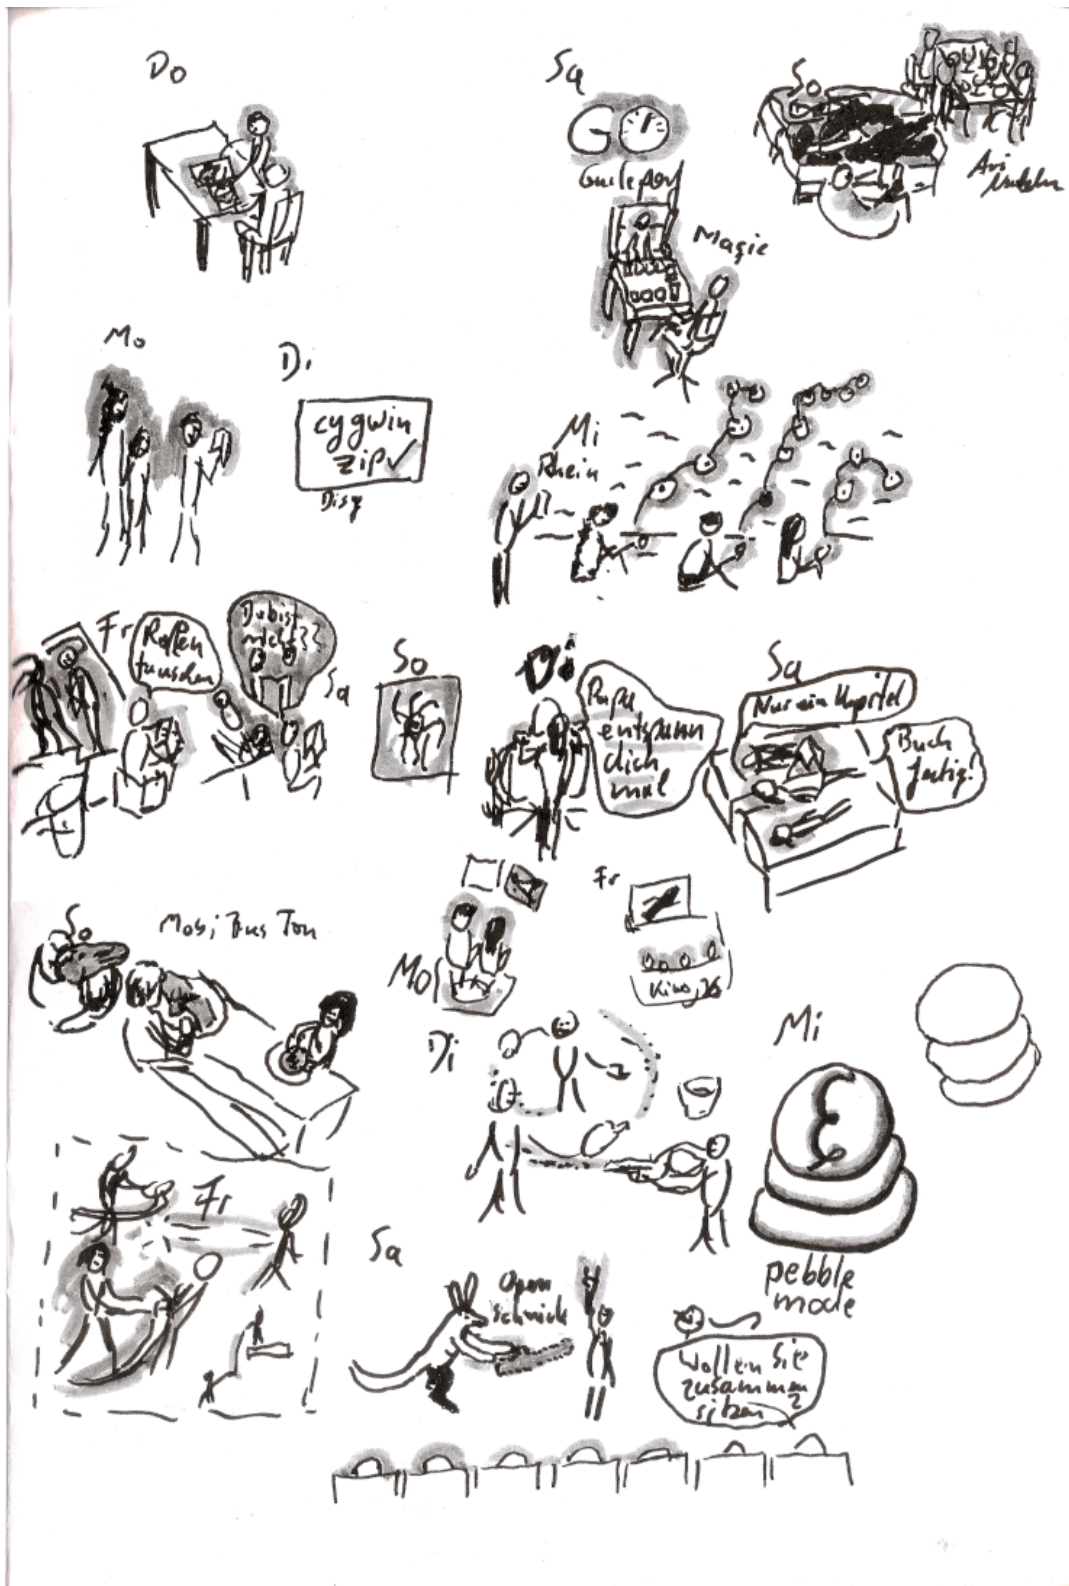 Do
Sa
GO
So
Magie
Mo
Di
cygwin
zip ✓
Mi
Rhein
Fr
Rollen
tauschen
Du bist
Sa
So
Di
Papa
entspann
dich
mal
Sa
Nur ein Kapitel
Buch
fertig!
So
Mobi Bus Ton
Mo
Fr
Kino
Di
Mi
pebble
mode
Fr
Sa
Open
Wollen Sie
zusammen
sitzen?